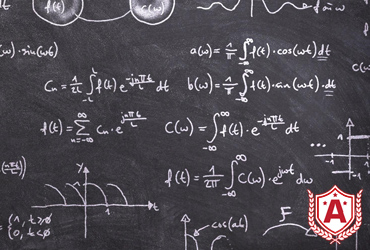 f(t) C(ω)
(ω)·sin(ωt)
a(ω) = 1/π ∫_{-∞}^{∞} f(t)·cos(ωt) dt
Cn = 1/2L ∫_{-L}^{L} f(t) e^{-jnπt/L} dt
b(ω) = 1/π ∫_{-∞}^{∞} f(t)·sin(ωt) dt
f(t) = Σ_{n=-∞}^{∞} Cn·e^{jnπt/L}
C(ω) = ∫_{-∞}^{∞} f(t)·e^{-jnπt/L} dt
f(t) = 1/2π ∫_{-∞}^{∞} C(ω)·e^{jωt} dω
y
t
1
{1, t≥0
{0, t<0
cos(ab)
F
1
-1
A